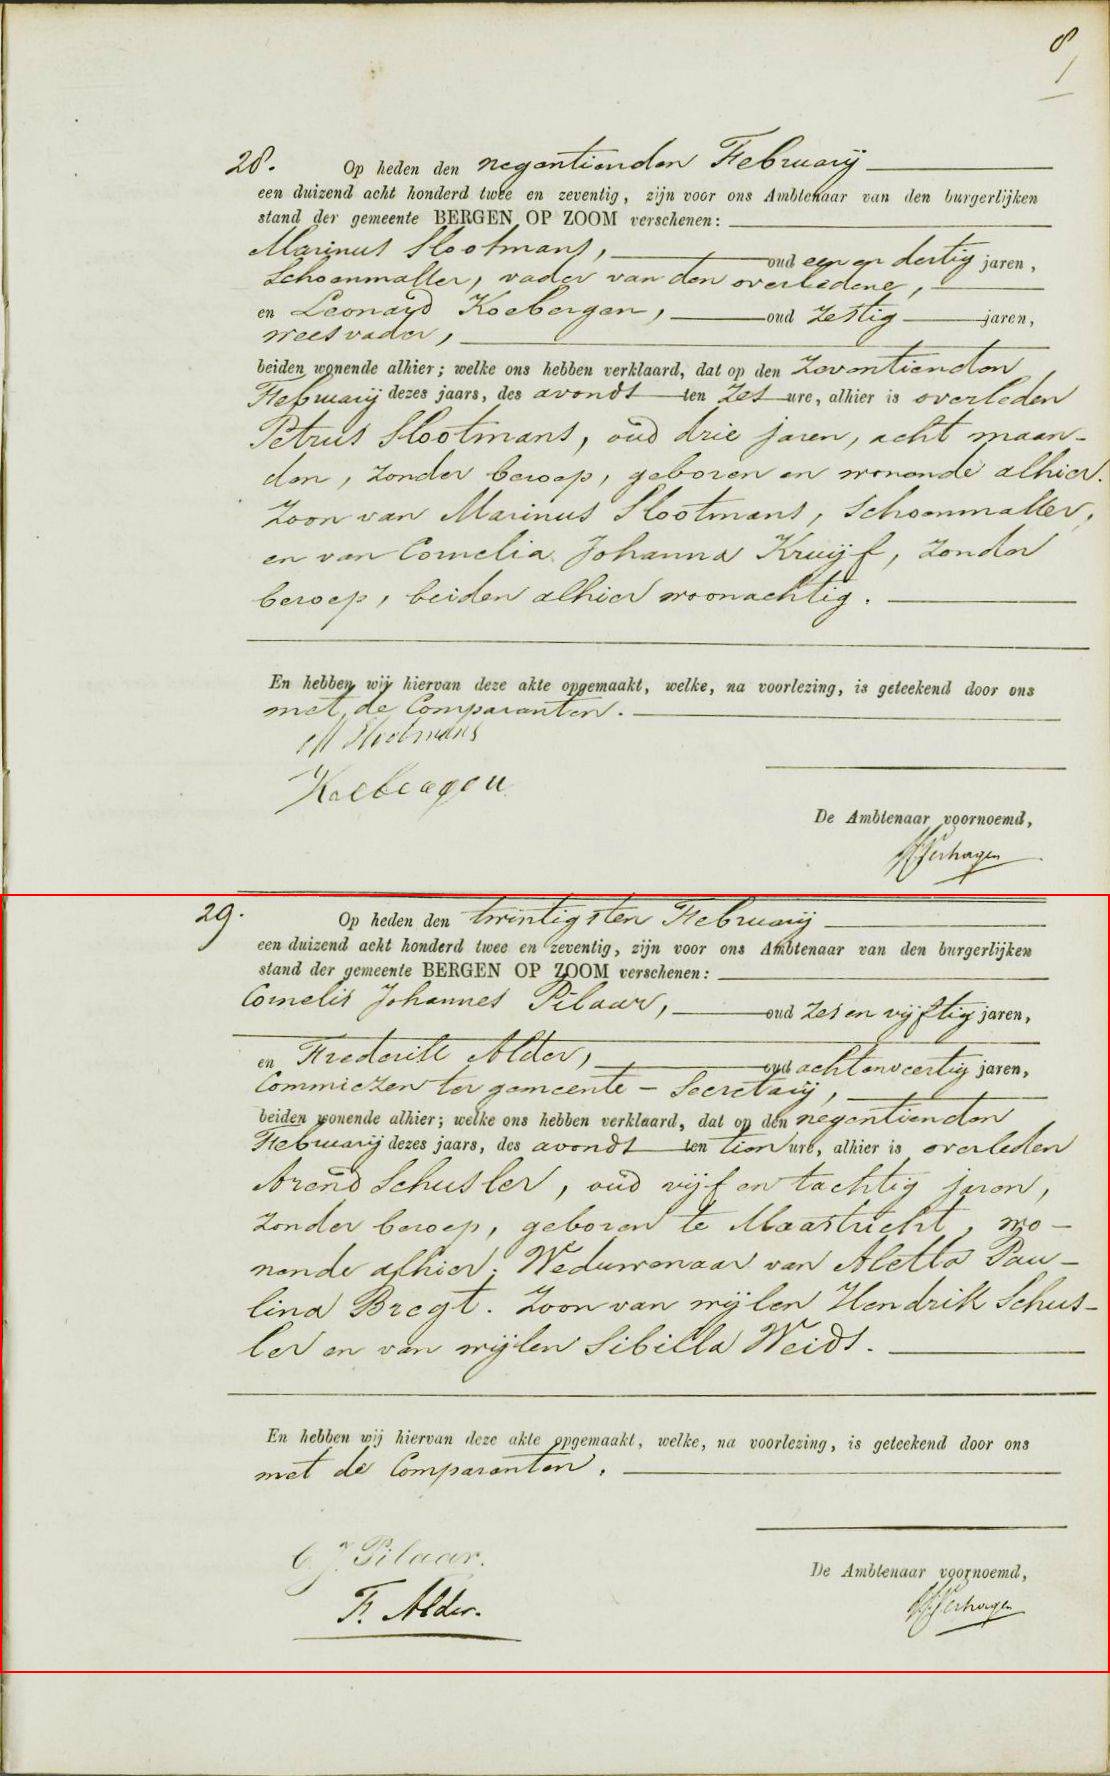 8
28. Op heden den negentienden Februarij
een duizend acht honderd twee en zeventig, zijn voor ons Ambtenaar van den burgerlijken
stand der gemeente BERGEN OP ZOOM verschenen:
Marinus Slootmans, oud een en dertig jaren,
Schoenmaker, vader van den overledene,
en Leonard Koebergen, oud zestig jaren,
weesvader,
beiden wonende alhier; welke ons hebben verklaard, dat op den zeventienden
Februarij dezes jaars, des avonds ten zes ure, alhier is overleden
Petrus Slootmans, oud drie jaren, acht maan-
den, zonder beroep, geboren en wonende alhier.
Zoon van Marinus Slootmans, Schoenmaker,
en van Cornelia Johanna Kruijf, zonder
beroep, beiden alhier woonachtig.
En hebben wij hiervan deze akte opgemaakt, welke, na voorlezing, is geteekend door ons
met de Comparanten.
M Slootmans
Koebergen
De Ambtenaar voornoemd,
Verhagen
29. Op heden den twintigsten Februarij
een duizend acht honderd twee en zeventig, zijn voor ons Ambtenaar van den burgerlijken
stand der gemeente BERGEN OP ZOOM verschenen:
Cornelis Johannes Pilaar, oud zes en vijftig jaren,
en Frederik Alder, oud achtenveertig jaren,
Commiezen ter gemeente - Secretarij,
beiden wonende alhier; welke ons hebben verklaard, dat op den negentienden
Februarij dezes jaars, des avonds ten tien ure, alhier is overleden
Arend Schusler, oud vijf en tachtig jaren,
zonder beroep, geboren te Maastricht, wo-
nende alhier; Weduwenaar van Aletta Pau-
lina Bregt. Zoon van wijlen Hendrik Schus-
ler en van wijlen Sibilla Weids.
En hebben wij hiervan deze akte opgemaakt, welke, na voorlezing, is geteekend door ons
met de Comparanten.
C J Pilaar.
F. Alder.
De Ambtenaar voornoemd,
Verhagen